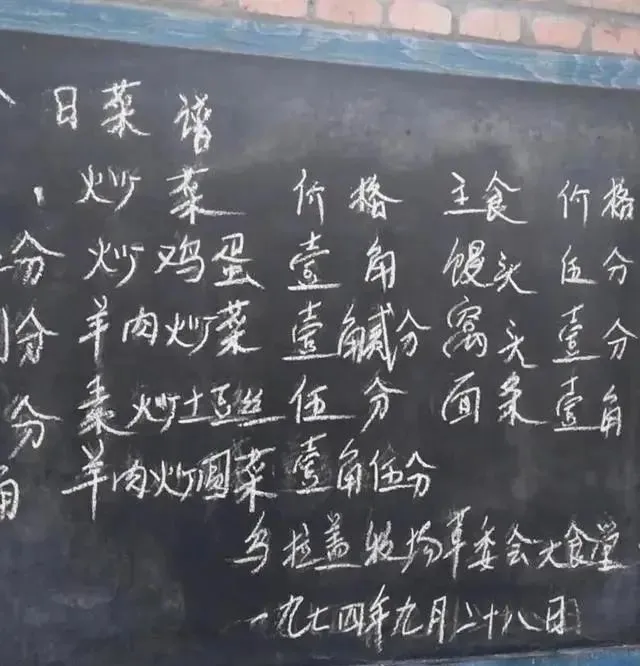 日菜谱
炒菜 价格 主食 价格
分 炒鸡蛋 壹角 馒头 伍分
分 羊肉炒菜 壹角贰分 窝头 壹分
分 素炒土豆丝 伍分 面条 壹角
角 羊肉炒圆菜 壹角伍分
乌拉盖牧场革委会大食堂
一九七四年九月二十八日